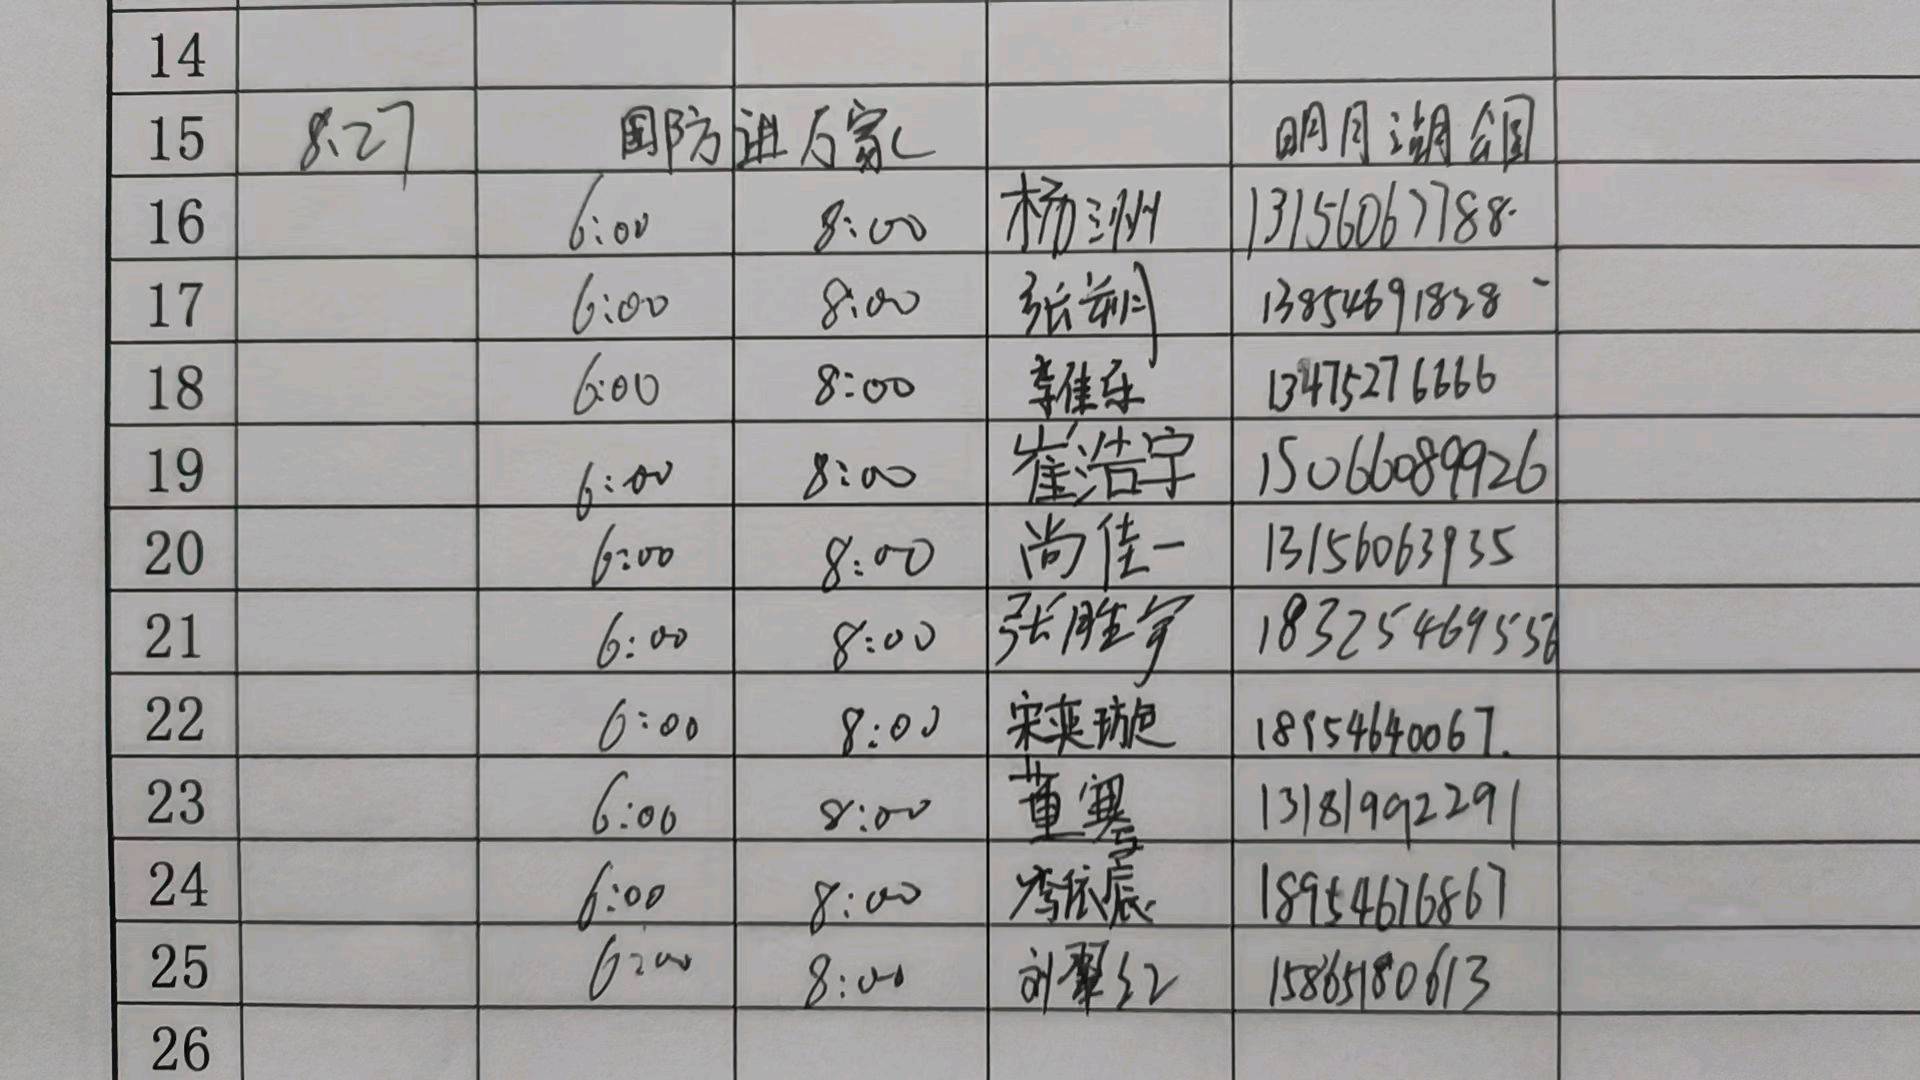 14
15 8.27 国防进万家 明月湖公园
16 6:00 8:00 杨洲 13156067788.
17 6:00 8:00 张朔 13854691828
18 6:00 8:00 李佳乐 13475276666
19 6:00 8:00 崔浩宇 15066089926
20 6:00 8:00 尚佳一 13156063935
21 6:00 8:00 张胜宇 18325469556
22 6:00 8:00 宋奕 18954640067.
23 6:00 8:00 董 13181992291
24 6:00 8:00 李依宸 18954676867
25 6:00 8:00 刘翠红 15865180613
26